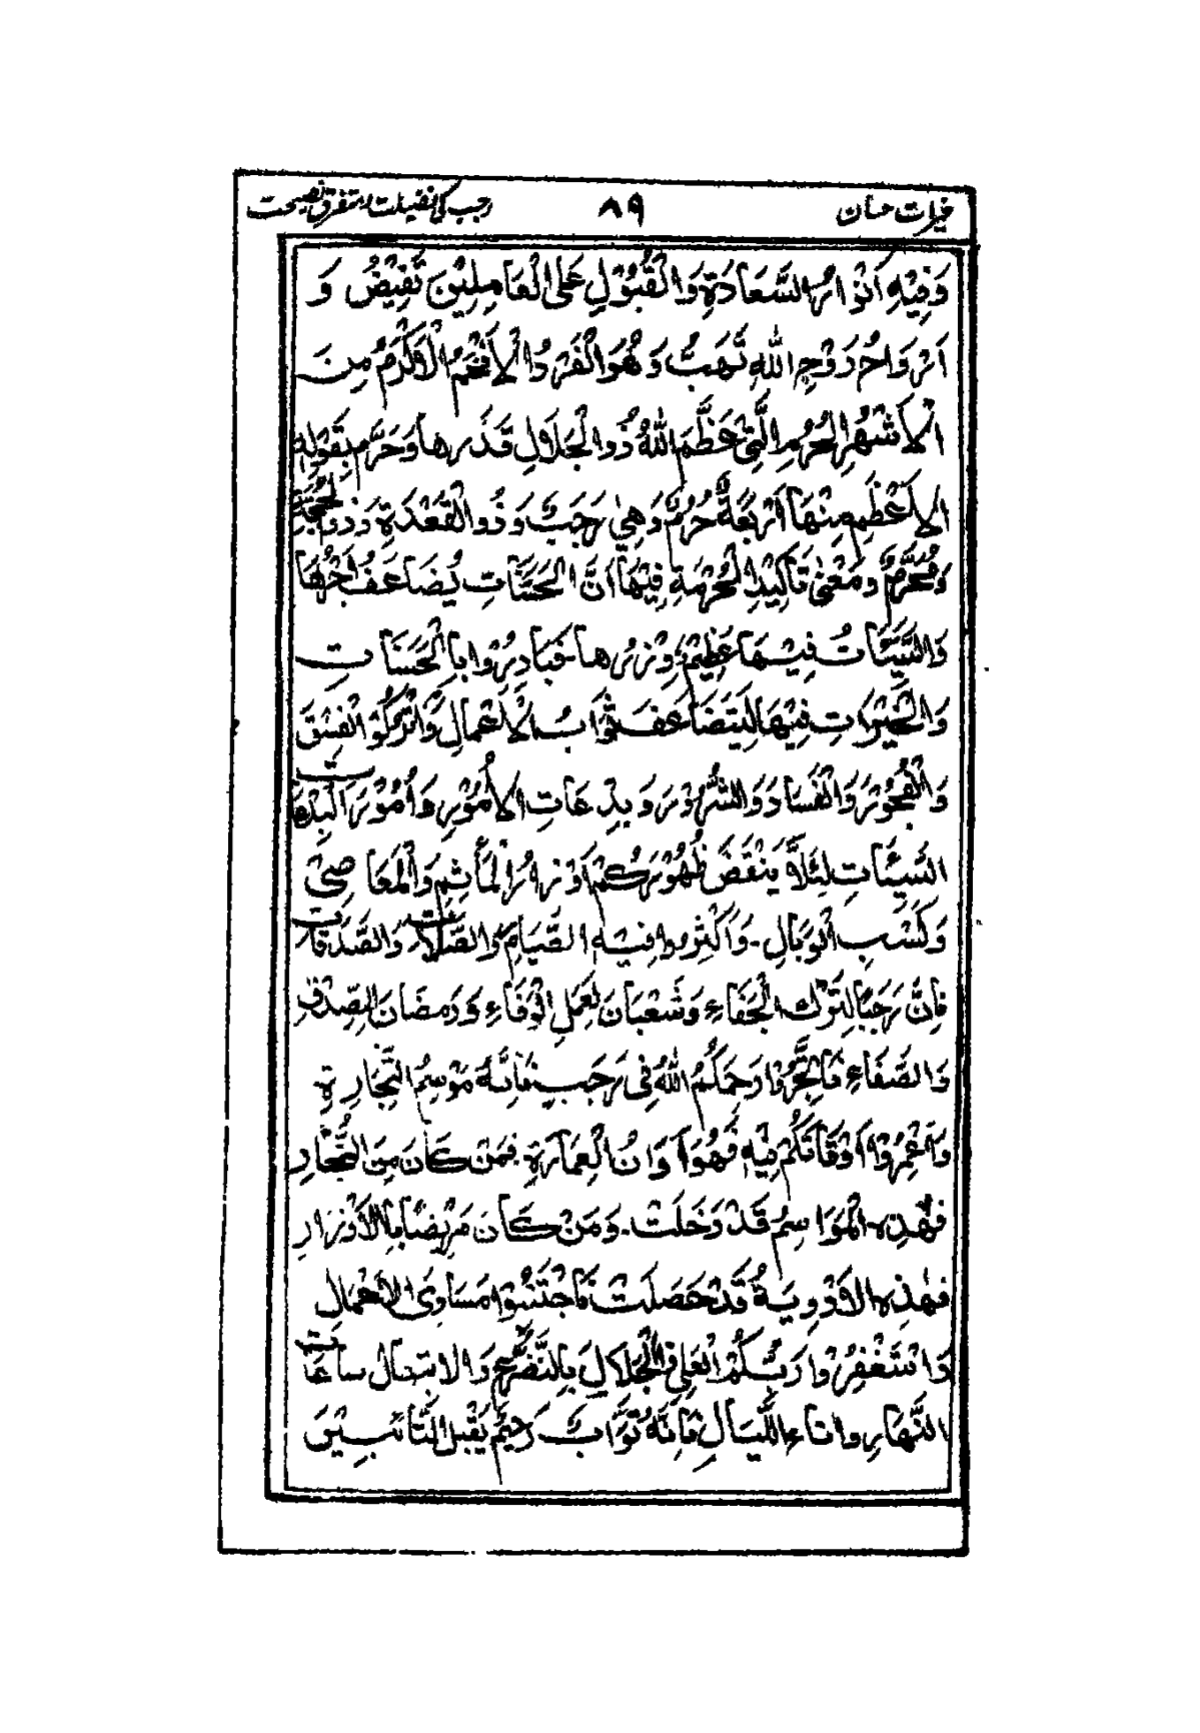 خیرات حسان ۸۹ رجب کی فضیلت، متفرق نصیحت
وَفِيْهِ اَنْوَارُ السَّعَادَةِ وَالْقُبُوْلِ عَلَى الْعَامِلِيْنَ تَفِيْضُ وَ
اَرْوَاحُ رَوْحِ اللهِ تَهَبُّ وَهُوَ الْفَرْدُ الْاَفْخَمُ الْاَكْرَمُ مِنَ
الْاَشْهُرِ الْحُرُمِ الَّتِيْ عَظَّمَ اللهُ ذُو الْجَلَالِ قَدْرَها وَحَرَّمَ بِقَوْلِهِ
الْاَعْظَمِ مِنْهَا اَرْبَعَةٌ حُرُمٌ وَهِيَ رَجَبٌ وَذُو الْقَعْدَةِ وَذُو الْحُجَّةِ
وَمُحَرَّمٌ وَمَعْنٰى تَاكِيْدِ الْحُرْمَةِ فِيْهَا اَنَّ الْحَسَنَاتِ يُضَاعَفُ اَجْرُهَا
وَالسَّيِّئَاتُ فِيْهَا عَظِيْمٌ وِزْرُها۔ فَبَادِرُوْا بِالْحَسَنَاتِ
وَالْخَيْرَاتِ فِيْهَا لِيَتَضَاعَفَ ثَوَابُ الْاَعْمَالِ وَاتْرُكُوْا الْفِسْقَ
وَالْفُجُوْرَ وَالْفَسَادَ وَالشُّرُوْرَ وَبِدْعَاتِ الْاُمُوْرِ وَاُمُوْرَ الْبِدْعَاتِ
السَّيِّئَاتِ لِئَلَّا يَنْقَضَ ظُهُوْرَكُمْ اَوْزَارُ الْمَأْثِمِ وَالْمَعَاصِيْ
وَكَسْبِ الْوَبَالِ۔ وَاَكْثِرُوا فِيْهِ الصِّيَامَ وَالصَّلَاتَ وَالصَّدَقَاتِ
فَاِنَّ رَجَبًا لِتَرْكِ الْجَفَاءِ وَشَعْبَانَ لِعَمَلِ الْوَفَاءِ وَرَمَضَانَ لِلصِّدْقِ
وَالصَّفَاءِ فَاتَّجِرُوْا رَحِمَكُمُ اللهُ فِي رَجَبٍ فَاِنَّهُ مَوْسِمُ التِّجَارَةِ
وَاعْمُرُوْا اَوْقَاتَكُمْ فِيْهِ فَهُوَ اَوَانُ الْعِمَارَةِ۔ فَمَنْ كَانَ مِنَ التُّجَّارِ
فَهٰذِهِ الْمَوَاسِمُ قَدْ دَخَلَتْ۔ وَمَنْ كَانَ مَرِيْضًا بِالْاَوْزَارِ
فَهٰذِهِ الْاَدْوِيَةُ قَدْ حَصَلَتْ فَاجْتَنِبُوْا مَسَاوِىَ الْاَعْمَالِ
وَاسْتَغْفِرُوْا رَبَّكُمُ الْعَلِيَّ ذَا الْجَلَالِ بِالتَّضَرُّعِ وَالْابتهال ساعَاتِ
النَّهَارِ واناءِ اللَّيَالِ فَاِنَّهُ تَوَّابٌ رَحِيْمٌ يَقْبَلُ التَّائِبِيْنَ